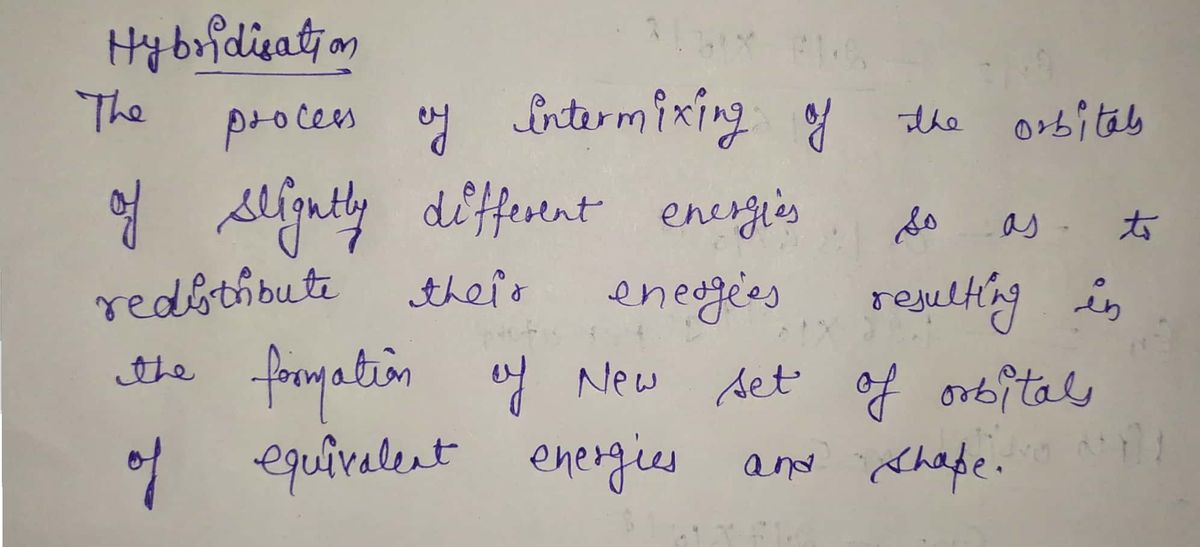 Hybridisation
The process of intermixing of the orbitals
of slightly different energies so as to
redistribute their energies resulting in
the formation of New set of orbitals
of equivalent energies and shape.